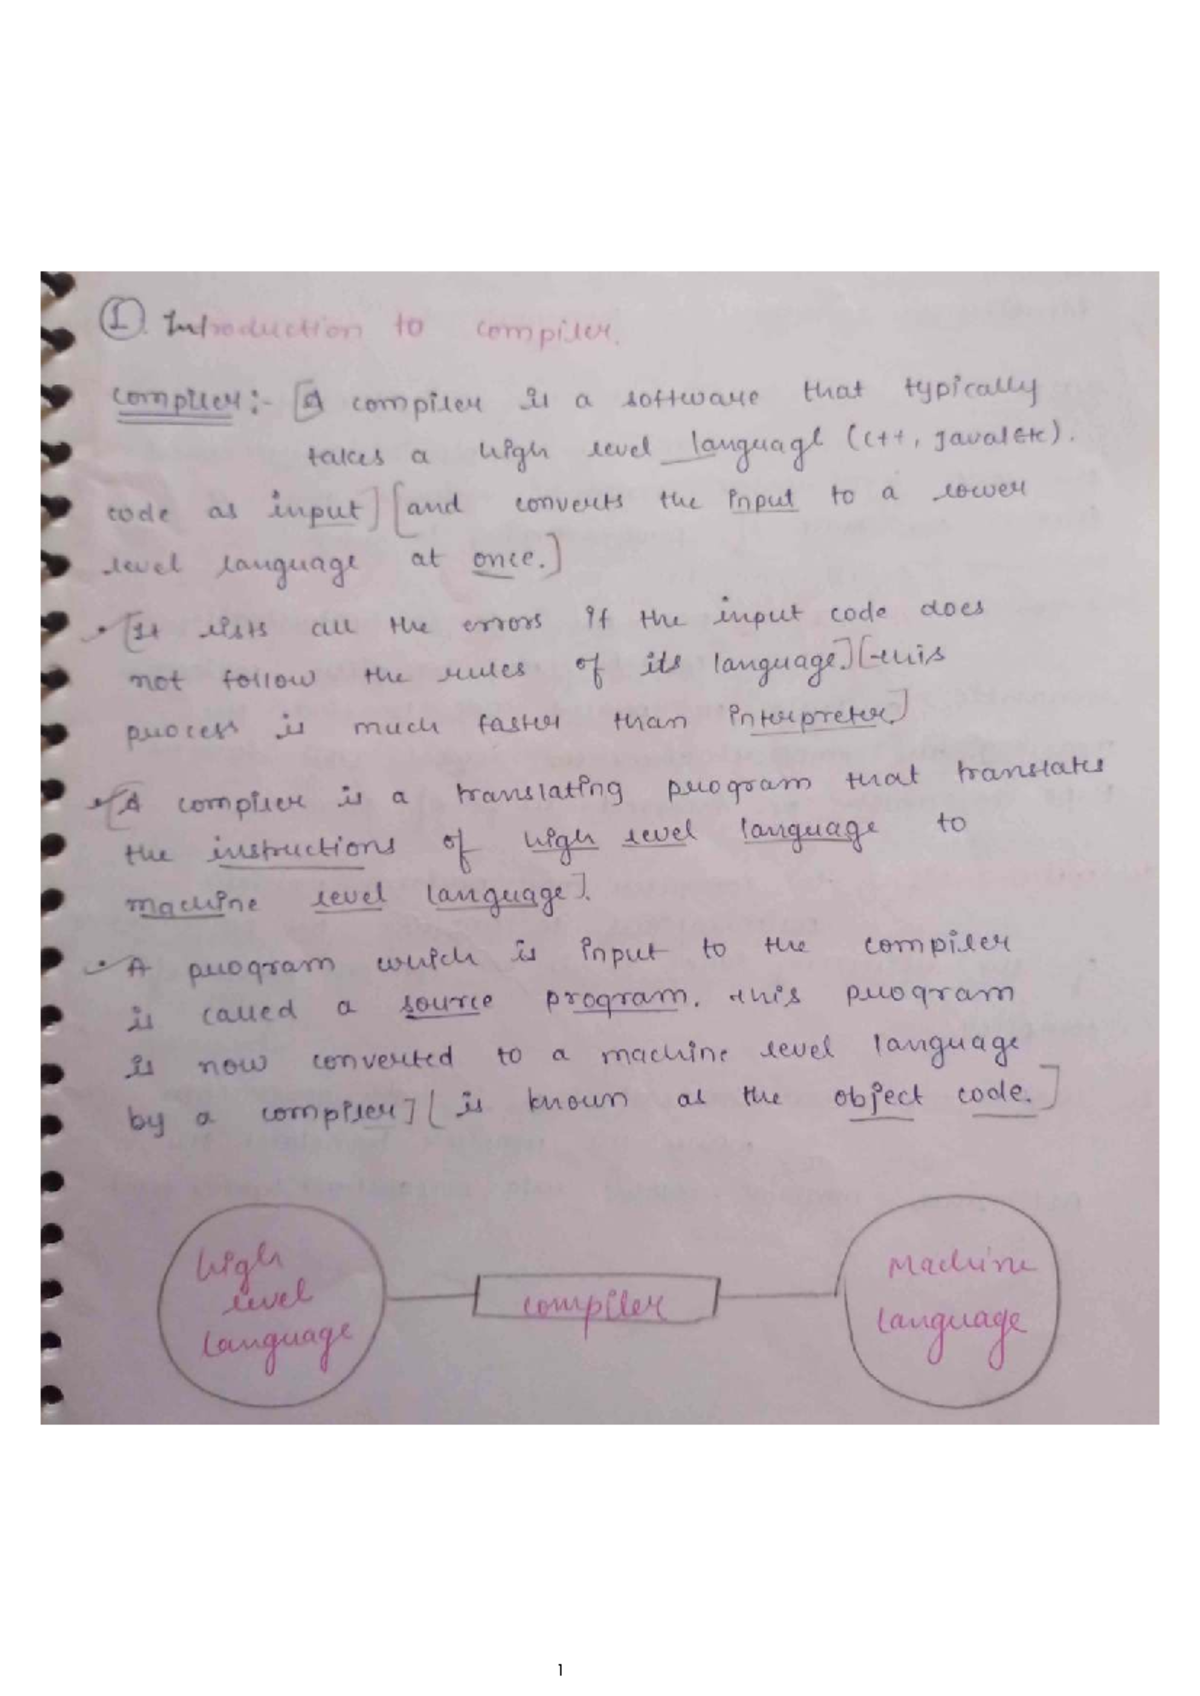 1. Introduction to compiler.
compiler:- [A compiler is a software that typically
takes a high level language (C++, Java etc).
code as input] [and converts the input to a lower
level language at once.]
• [It lists all the errors if the input code does
not follow the rules of its language.] [This
process is much faster than interpreter.]
• [A compiler is a translating program that translates
the instructions of high level language to
machine level language].
• A program which is input to the compiler
is called a source program. This program
is now converted to a machine level language
by a compiler] [is known as the object code.]
high
level
language
compiler
Machine
language
1